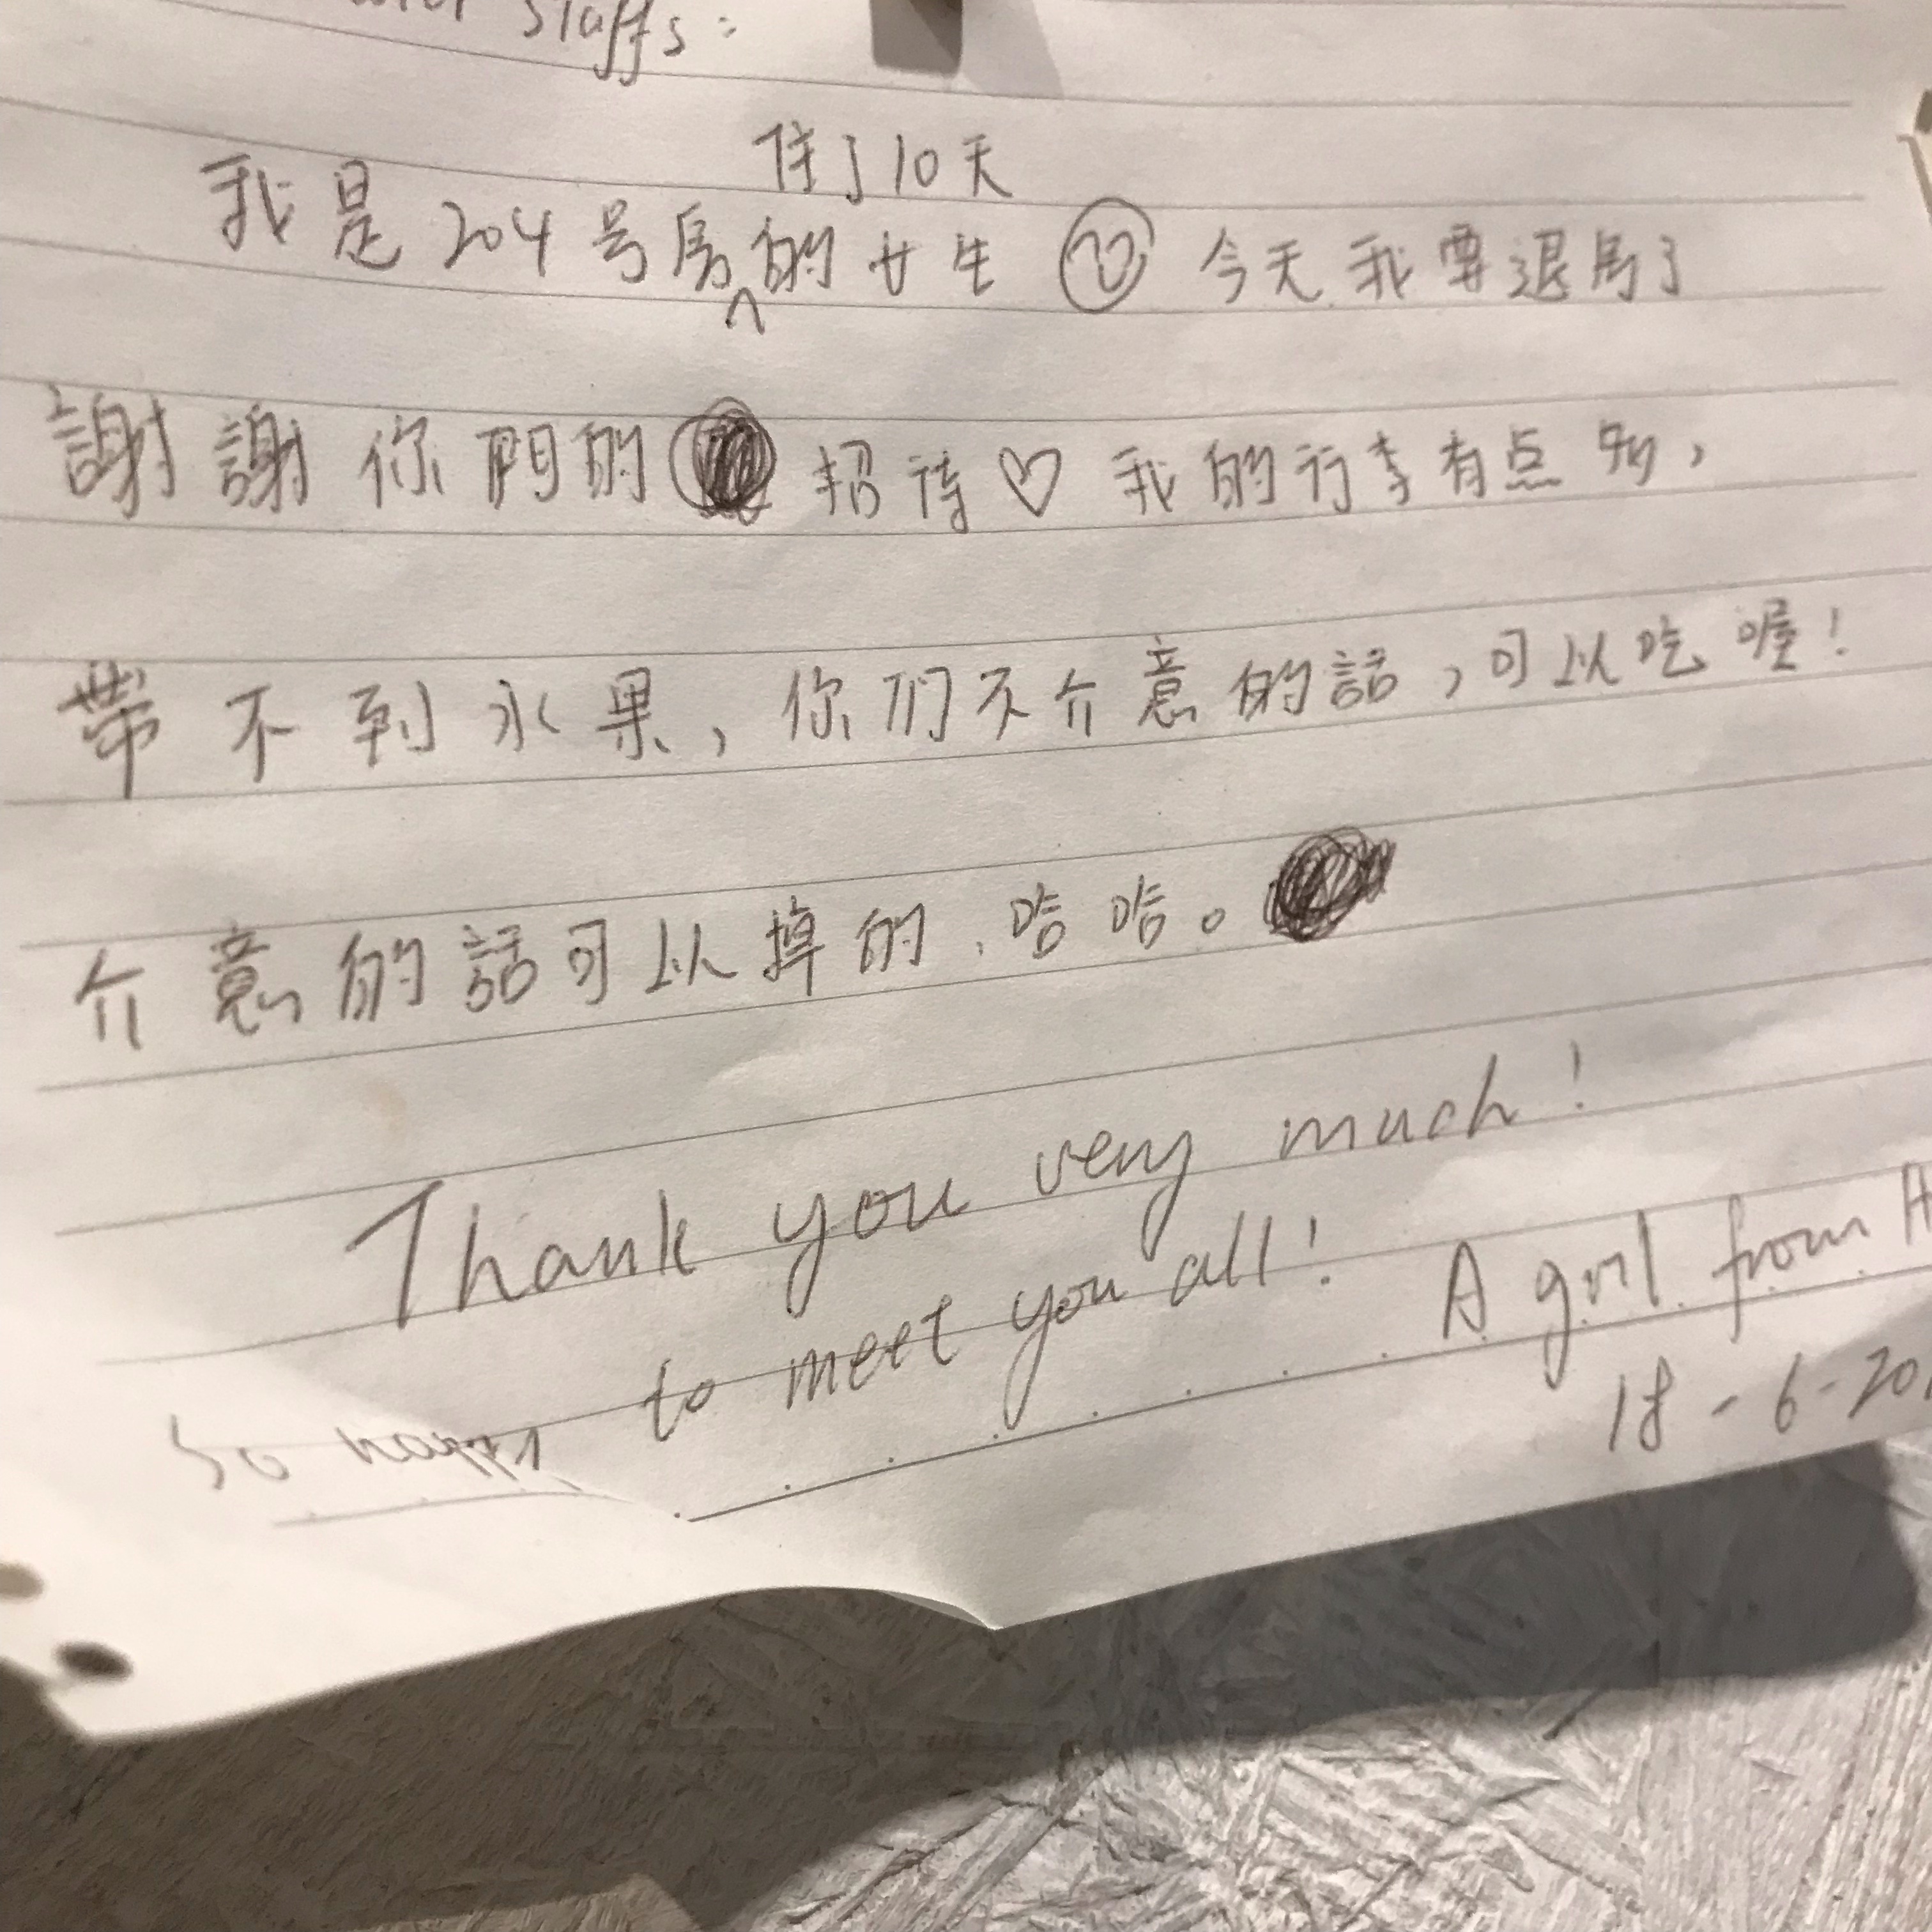 staffs:
住了10天
我是204号房的女生 今天我要退房了
謝謝你門的 招待♡ 我的行李有点多,
帶不到水果,你们不介意的話,可以吃喔!
介意的話可以掉的、哈哈。
Thank you very much!
So happy to meet you all! A girl from
18-6-20